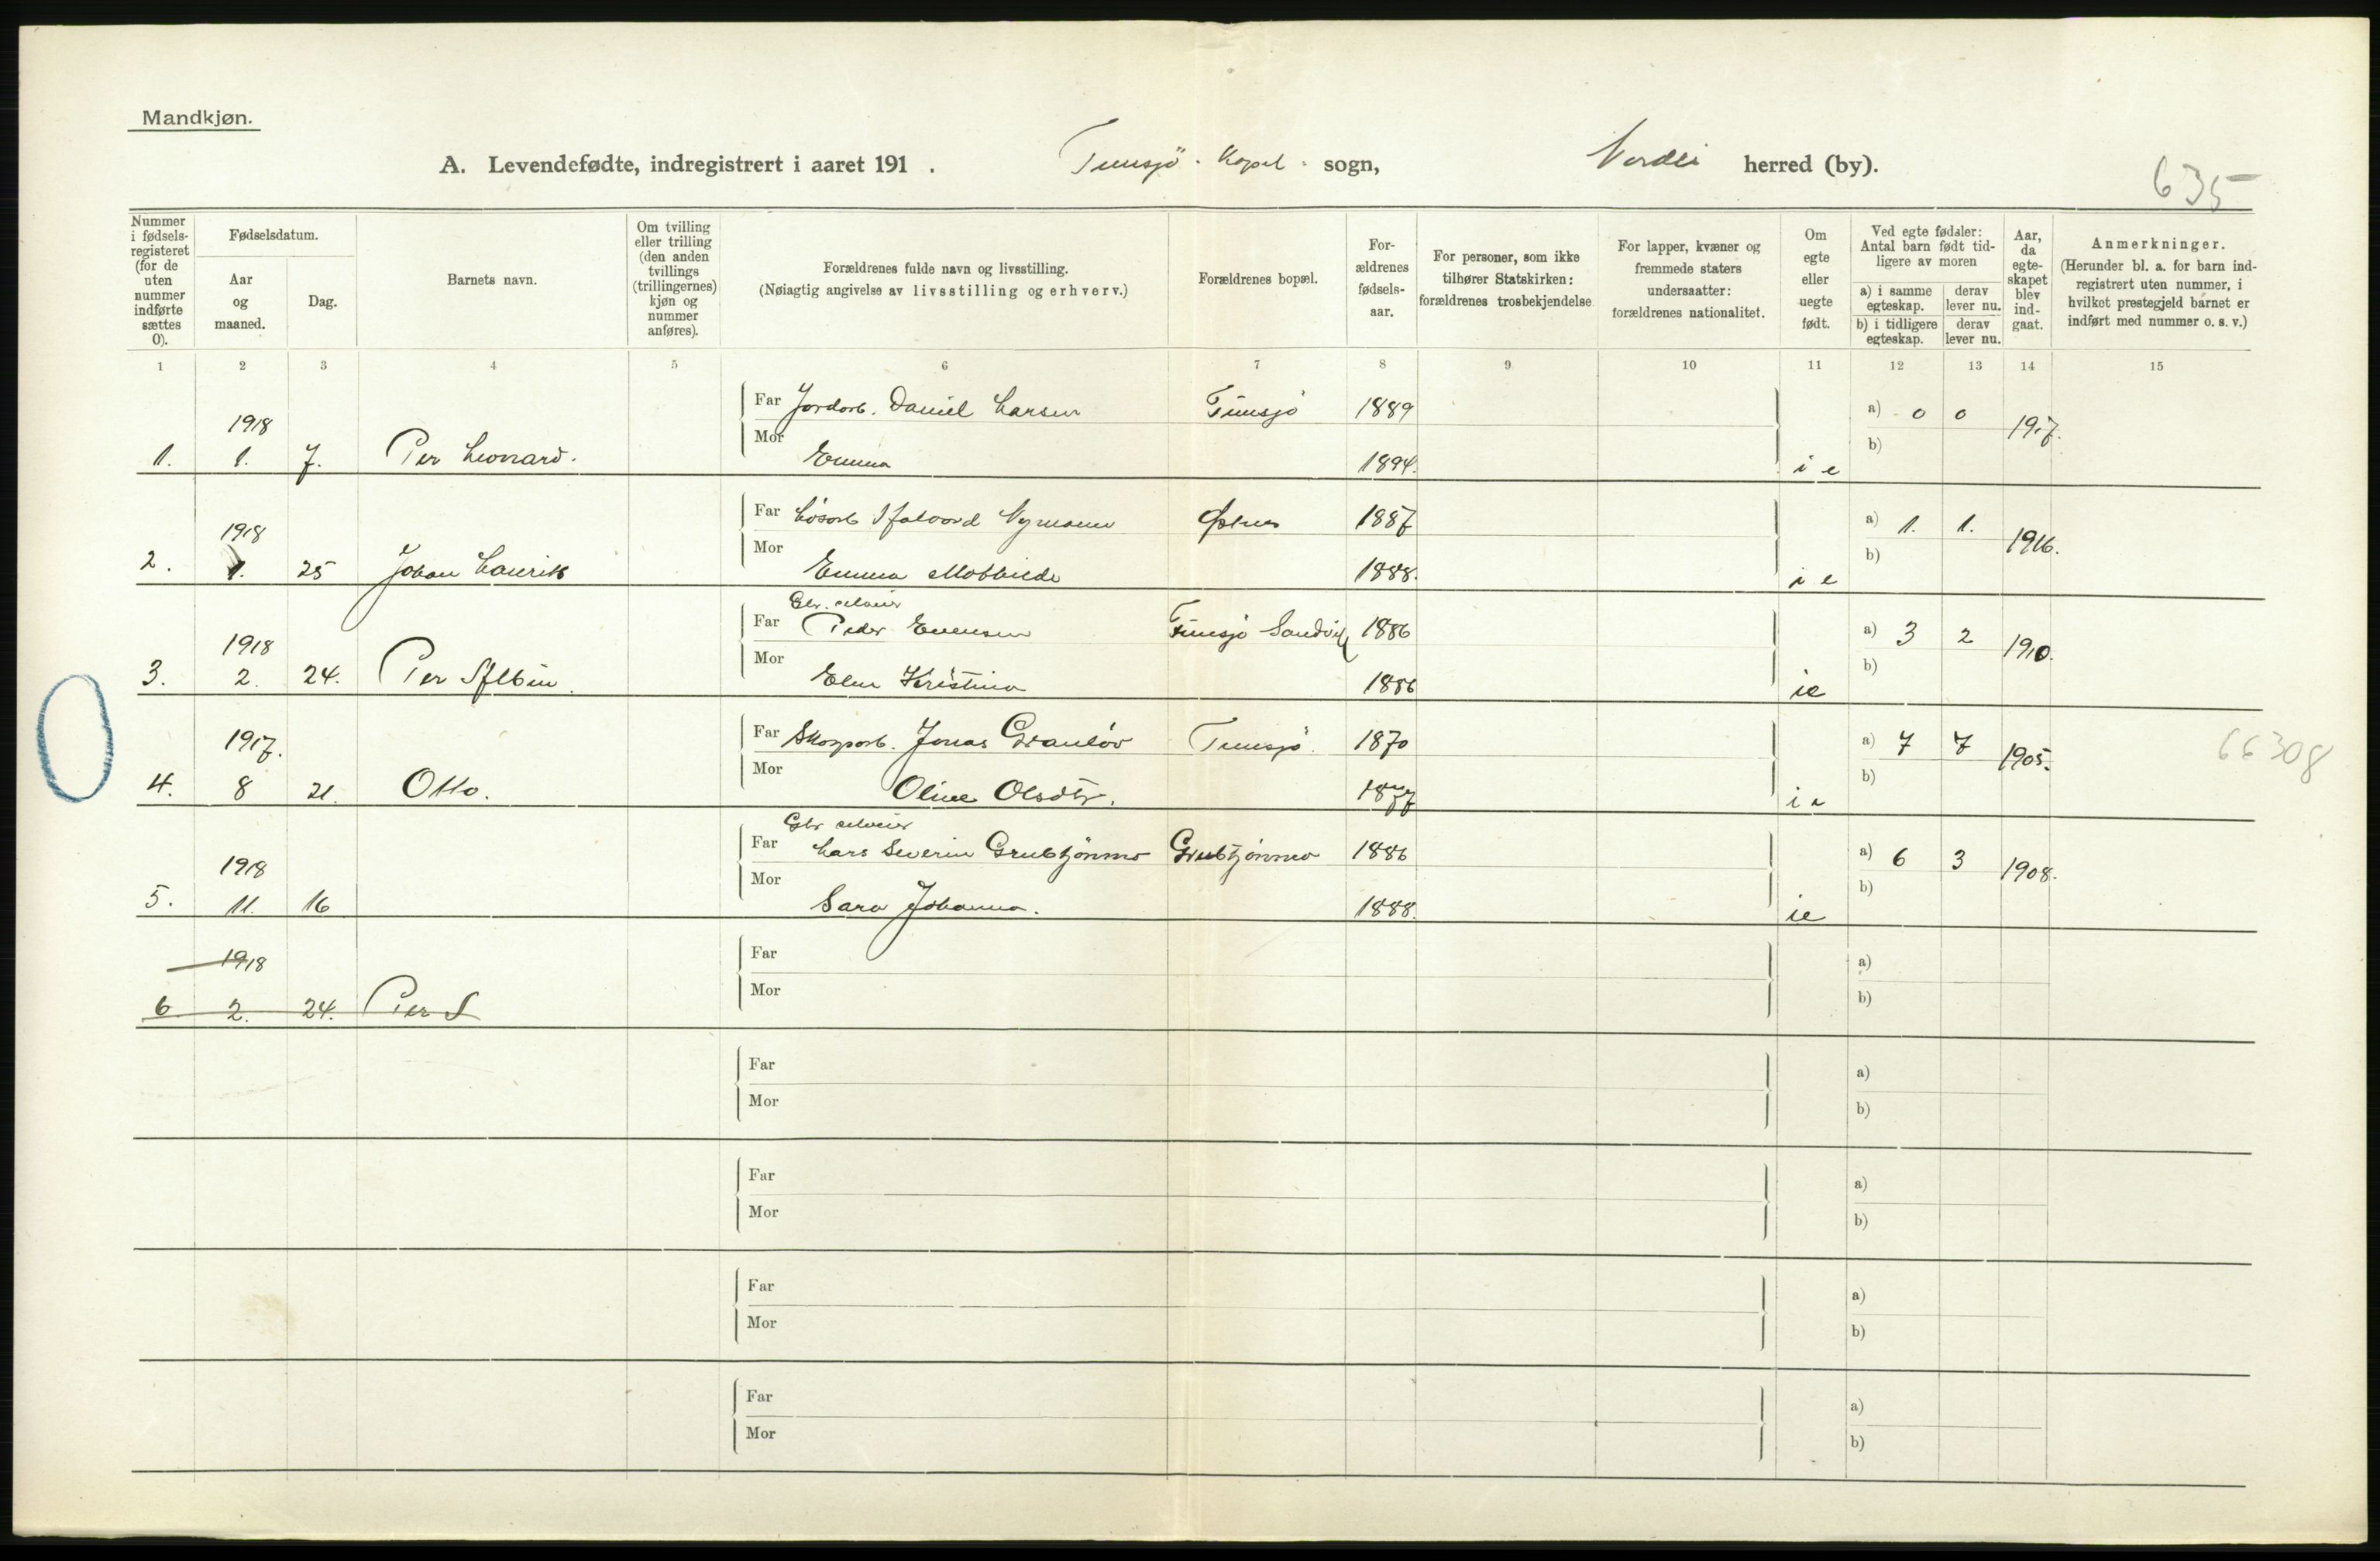 Mandkjøn.
A. Levendefødte, indregistrert i aaret 191 . Tunsjö - Kapel - sogn, Nordli herred (by).
635
Nummer i fødsels-registeret (for de uten nummer indførte sættes 0).
Fødselsdatum.
Aar og maaned.
Dag.
Barnets navn.
Om tvilling eller trilling (den anden tvillings (trillingernes) kjøn og nummer anføres).
Forældrenes fulde navn og livsstilling.
(Nøiagtig angivelse av livsstilling og erhverv.)
Forældrenes bopæl.
For-ældrenes fødsels-aar.
For personer, som ikke tilhører Statskirken: forældrenes trosbekjendelse
For lapper, kvæner og fremmede staters undersaatter: forældrenes nationalitet.
Om egte eller uegte født.
Ved egte fødsler: Antal barn født tid-ligere av moren
a) i samme egteskap.
derav lever nu.
b) i tidligere egteskap.
derav lever nu.
Aar, da egte-skapet blev ind-gaat.
Anmerkninger.
(Herunder bl. a. for barn ind-registrert uten nummer, i hvilket prestegjeld barnet er indført med nummer o. s. v.)
1 2 3 4 5 6 7 8 9 10 11 12 13 14 15
1918 Far Jordarb. Daniel Larsen Tunsjö 1889 a) 0 0 1917.
1. 1. 7. Per Leonard. Mor Emma 1894. i e b)
1918 Far Løsarb Halvard Nymann 1887 a) 1. 1. 1916.
2. 1. 25 Johan Laurits Mor Emma 1888. i e b)
Gbr. selveier
1918 Far Peder Evensen Tunsjö Sandvik 1886 a) 3 2 1910.
3. 2. 24. Per Albin. Mor Elen Kristina 1886 ie b)
1917. Far Skogarb. Jonas Granlöv Tunsjö. 1870 a) 7 7 1905. 66308
4. 8 21. Otto. Mor Oline Olsdtr. 1877 i e b)
Gbr selveier
1918 Far Lars Severin Grubtjönmo Grubtjönmo 1886 a) 6 3 1908.
5. 11. 16 Mor Sara Johanna. 1888. ie b)
1918 Far a)
6 2. 24. Per S Mor b)
Far a)
Mor b)
Far a)
Mor b)
Far a)
Mor b)
Far a)
Mor b)